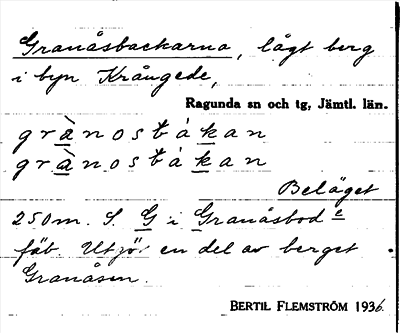 Granåsbackarna, lågt berg
i byn Krångede,
Ragunda sn och tg, Jämtl. län.
grànosbákan
grànosbákan
Beläget
250 m. S. G i Granåsbod e
fäb. Utgör en del av berget
Granåsen.
BERTIL FLEMSTRÖM 1936.